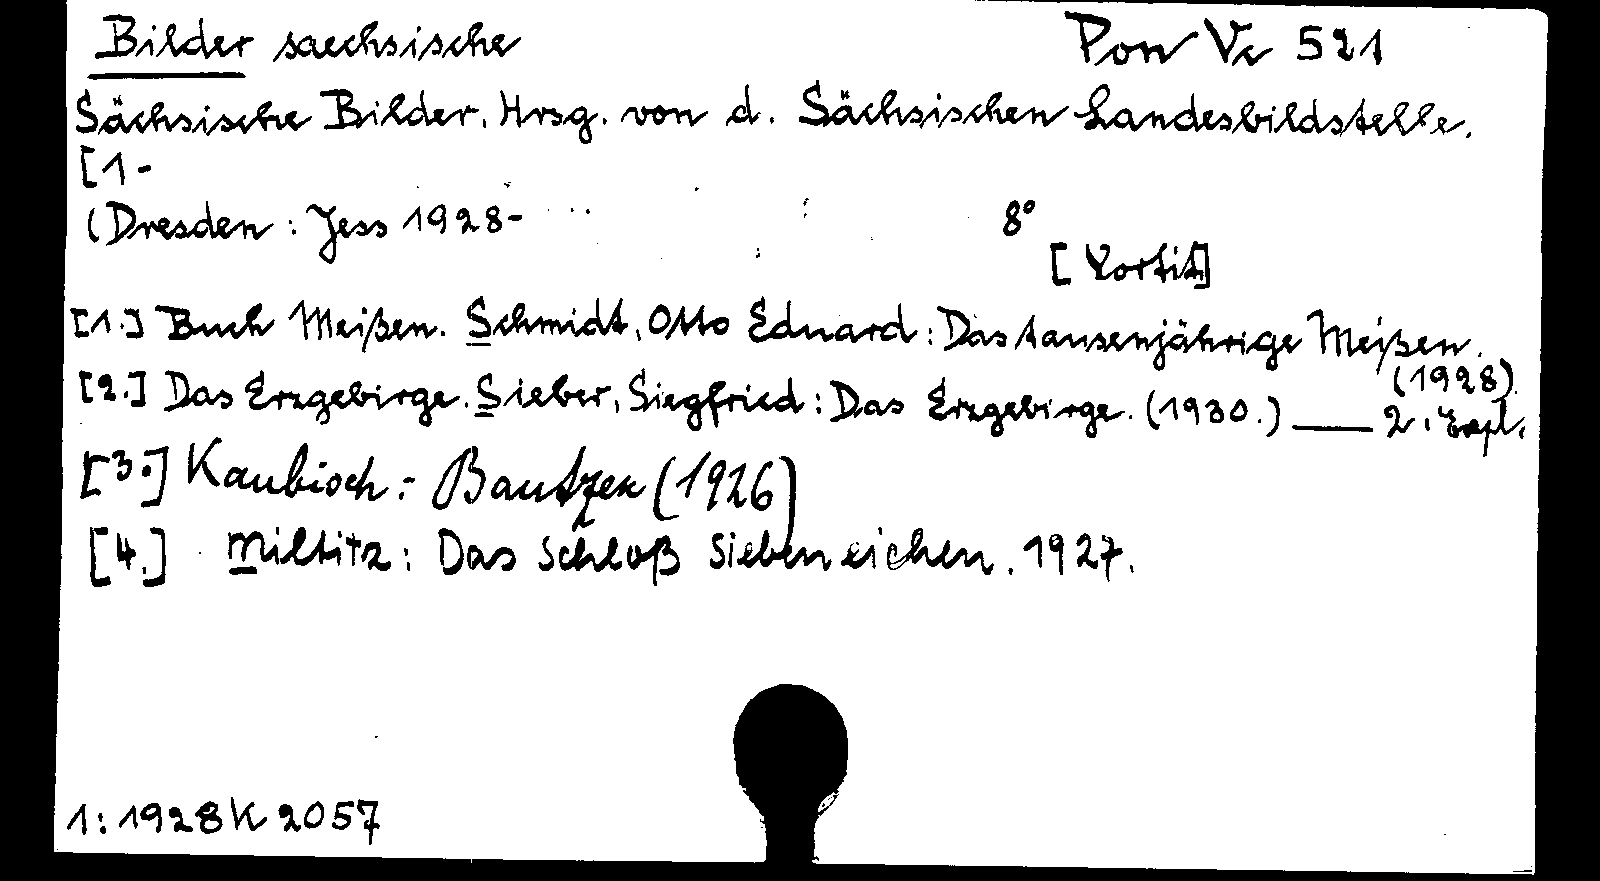 Bilder saechsische Pon Vc 521
Sächsische Bilder. Hrsg. von d. Sächsischen Landesbildstelle.
[1-
(Dresden: Jess 1928- 8°
[Vortit]
[1.] Buch Meißen. Schmidt, Otto Eduard: Das tausenjährige Meißen.
(1928).
[2.] Das Erzgebirge. Sieber, Siegfried: Das Erzgebirge. (1930.) — 2. Expl.
[3.] Kaubisch: Bautzen (1926)
[4.] Miltitz: Das Schloß Siebeneichen. 1927.
1: 1928 K 2057